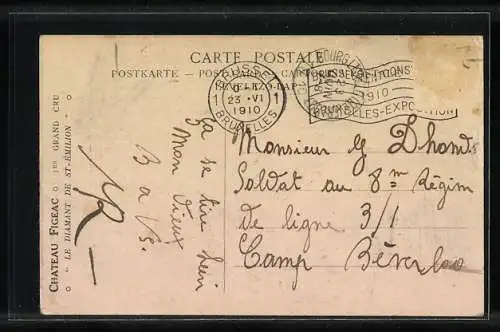 CARTE POSTALE
POSTKARTE
BRUSSEL
1 1
23 ·VI
1910
BRUXELLES
1910
BRUXELLES-EXPOSITION
CHATEAU FIGEAC 1er GRAND CRU
"LE DIAMANT DE ST-ÉMILION"
Ça se tire hein
Mon Vieux
B à Vs.
Monsieur G Dhondt
Soldat au 8me Régim
de ligne 3/1
Camp Béverloo